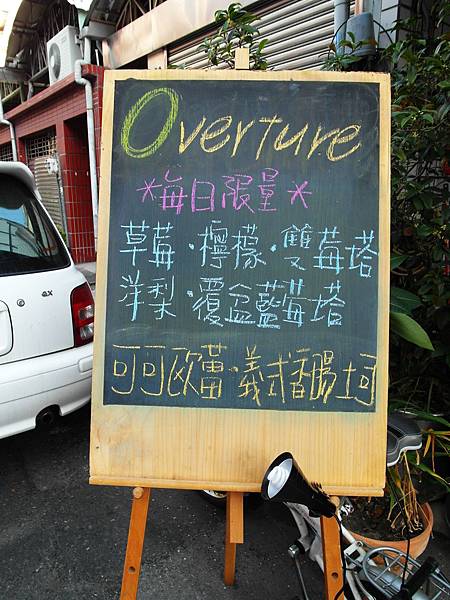 Overture
*每日限量*
草莓·檸檬·雙莓塔
洋梨·覆盆藍莓塔
可可欧蕾·義式香腸土司
GX